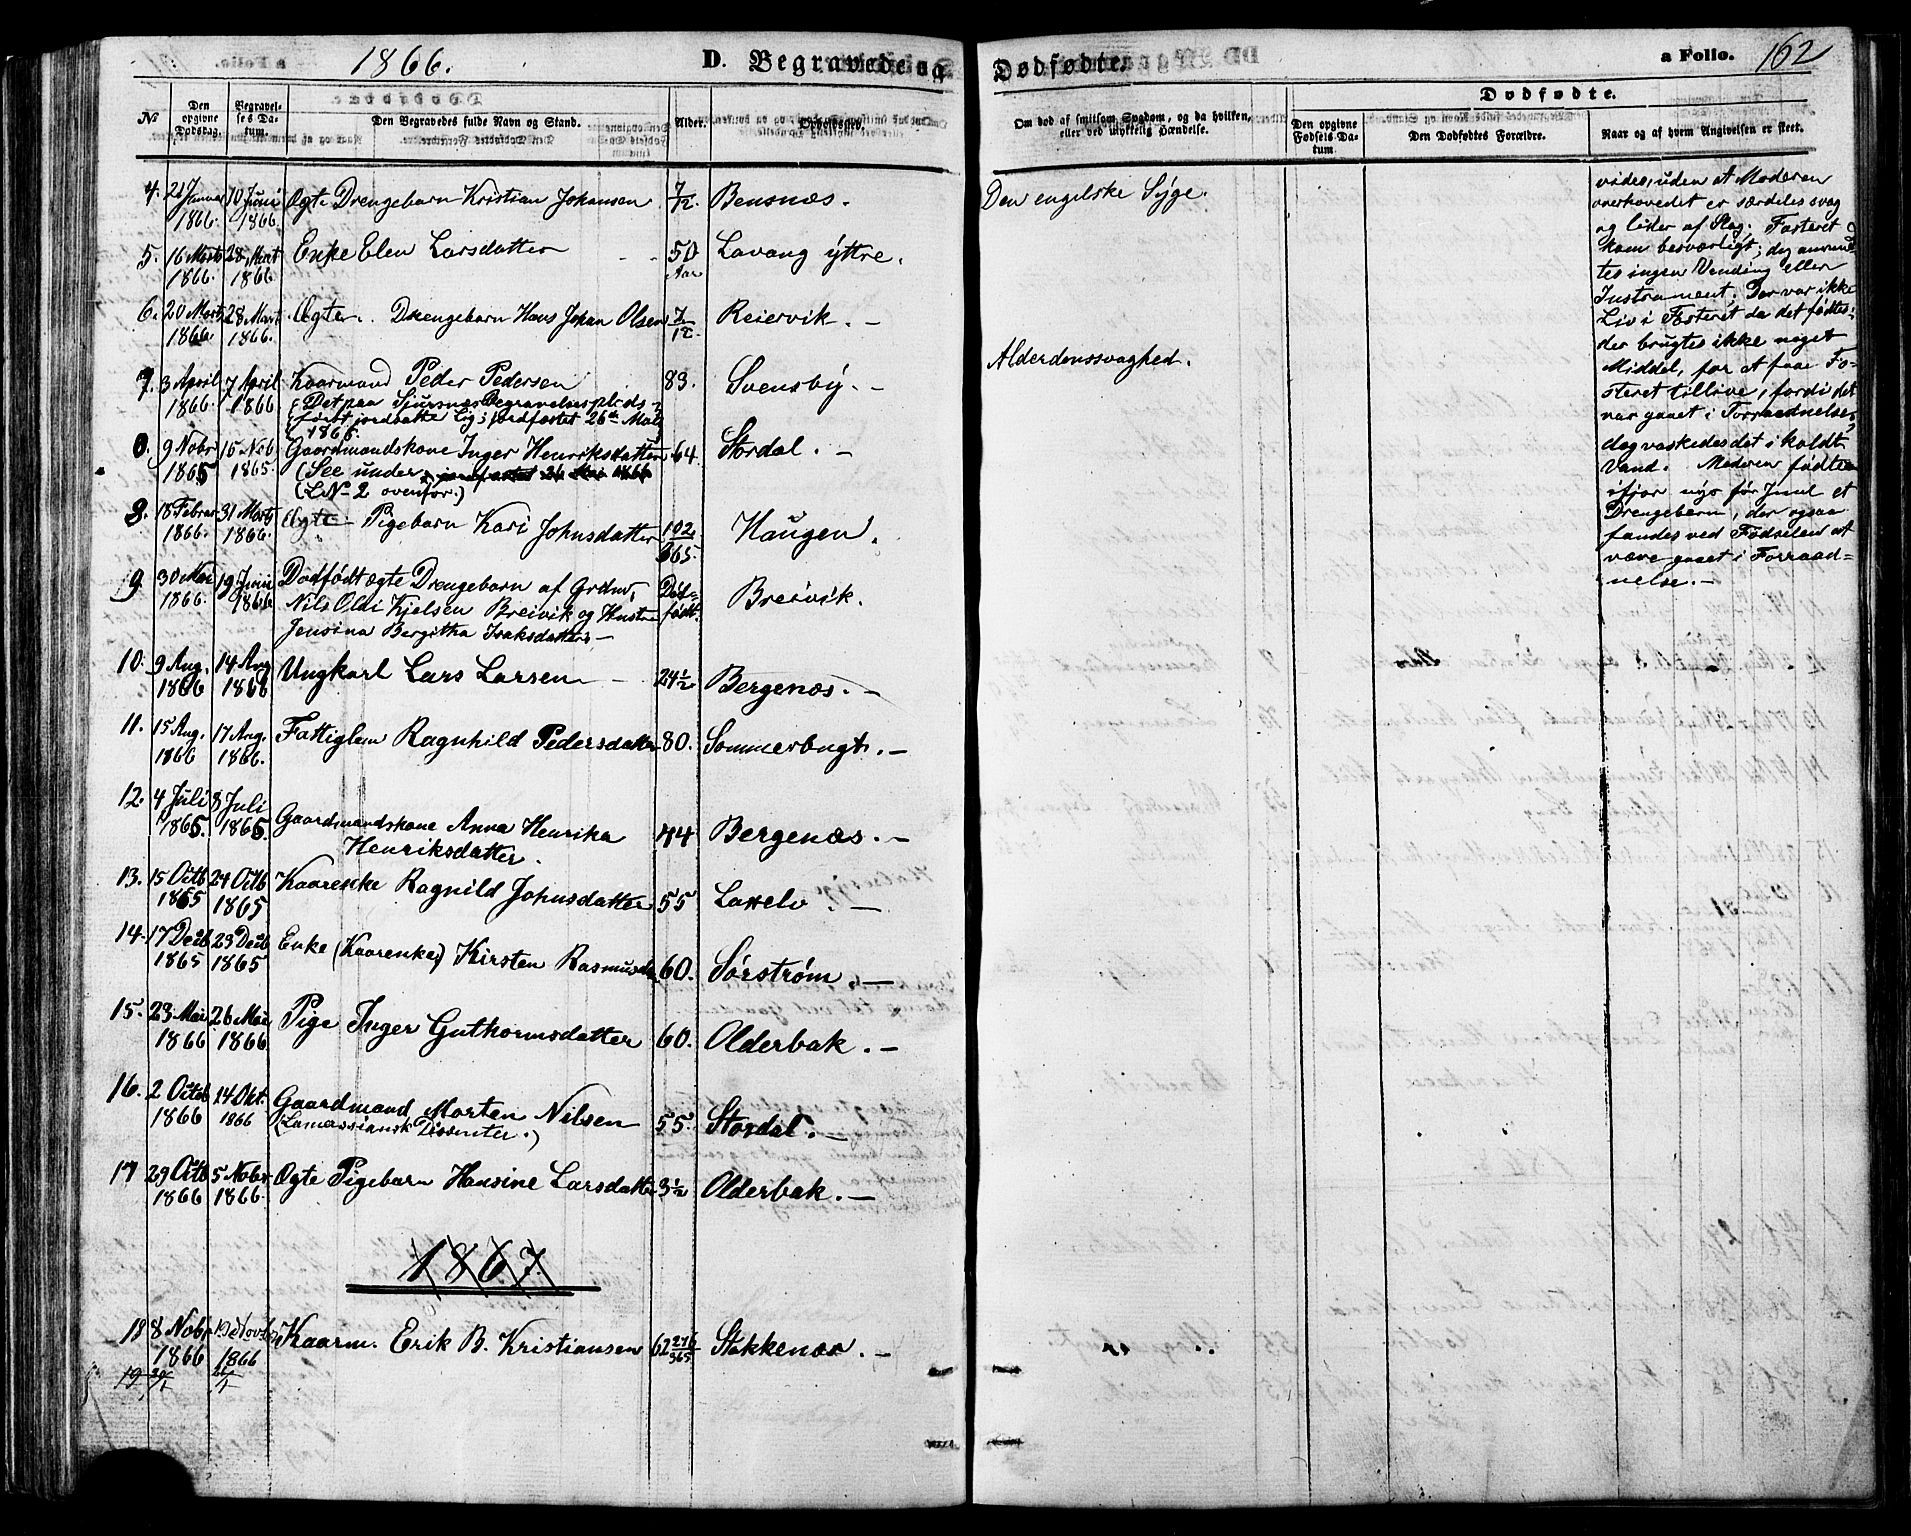 1866.
D. Begravede og Dødfødte.
a Folio. 162
No
Den opgivne Dødsdag.
Begravelses Datum.
Den Begravedes fulde Navn og Stand.
Alder.
Opholdssted.
Om død af smitsom Sygdom, og da hvilken,
eller ved ulykkelig Hændelse.
Dødfødte.
Den opgivne Fødsels Datum
Den Dødfødtes Forældre.
Naar og af hvem Angivelsen er skeet.
4. 21 Januar 1866. 10 Juni 1866. Ægte Drengebarn Kristian Johansen 7/12. Bensnæs. Den engelske Syge.
5. 16 Marts 1866. 28 Mart 1866. Enke Elen Larsdatter 50 Aar Lavang yttre.
6. 20 Marts 1866 28 Mart 1866. Ægte Drengebarn Hans Johan Olsen 7/12. Reiervik. –
7. 3 April 1866. 7 April 1866 Kaarmand Peder Pedersen 83. Svensby. – Alderdomssvaghed.
(Det paa Sjursnæs Begravelsesplads
først jordsatte Lig; jordfæstet 26de Mai
1866.
8. 9 Nobr 1865 15 Nob 1865. Gaardmandskone Inger Henriksdatter 64. Stordal. –
(See under jordfæstet 26 Mai 1866
(LNo 2 ovenfor.)
8. 18 Februar 1866. 31 Marts 1866. Ægte Pigebarn Kari Johnsdatter 102/365. Haugen.
9 30 Mai 1866. 19 Juni 1866 Dødfødt ægte Drengebarn af Grdmd. Dødfødt. Breivik.
Nils Oldi Kjelsen Breivik og Hustru
Jensina Bergitha Isaksdatter –
10. 9 Aug. 1866 14 Aug 1866 Ungkarl Lars Larsen – 24½ Bergenæs. –
11. 15 Aug. 1866 17 Aug. 1866. Fattiglem Ragnhild Pedersdatter 80. Sommerbugt. –
12. 4 Juli 1865. 8 Juli 1865 Gaardmandskone Anna Henrika 44 Bergenæs. –
Henriksdatter.
13. 15 Octb 1865 24 Octb 1865 Kaarenke Ragnild Johnsdatter 55 Lakselv. –
14. 17 Decb 1865 23 Decb 1865 Enke (Kaarenke) Kirsten Rasmusd 60. Sørstrøm. –
15. 23 Mai 1866 26 Mai 1866 Pige Inger Guthormsdatter 60. Olderbak. –
16. 2 Octob 1866 14 Okt. 1866 Gaardmand Morten Nilsen 55. Stordal. –
(Lamersiansk Dissenter.)
17 29 Octb 1866 5 Nobr 1866. Ægte Pigebarn Hansine Larsdatter 3½ Olderbak. –
1867.
18 8 Nobr 1866 19 Novbr 1866 Kaarm. Erik B. Kristiansen 62 276/365 Stakkenæs. –
19.
vides, uden at Moderen
overhovedet er særdeles svag
og lider af Slag. Fosteret
kom besværligt; dog anvend-
tes ingen Vending eller
Instrument. Der var ikke
Liv i Fosteret da det fødtes;
der brugtes ikke noget
Middel, for at faae Fo-
steret tillive, fordi det
var gaaet i Forraadnelse,
dog vaskedes det i koldt
Vand. Moderen fødte
ifjor nys før Juul et
Drengebarn, der ogsaa
fandtes ved Fødselen at
være gaaet i Forraad-
nelse. –